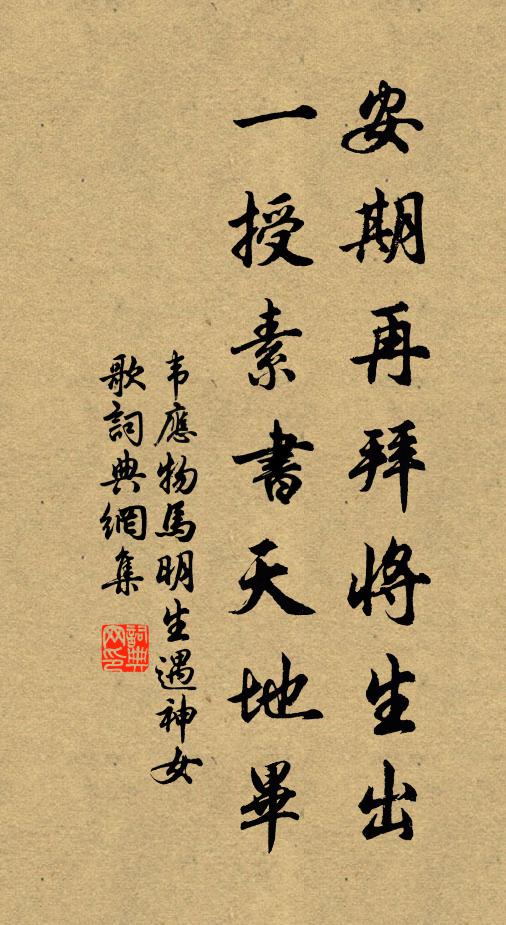 安期再拜將生出
一授素書天地畢
韦應物馬明生遇神女
歌詞典網集
詞典
网印